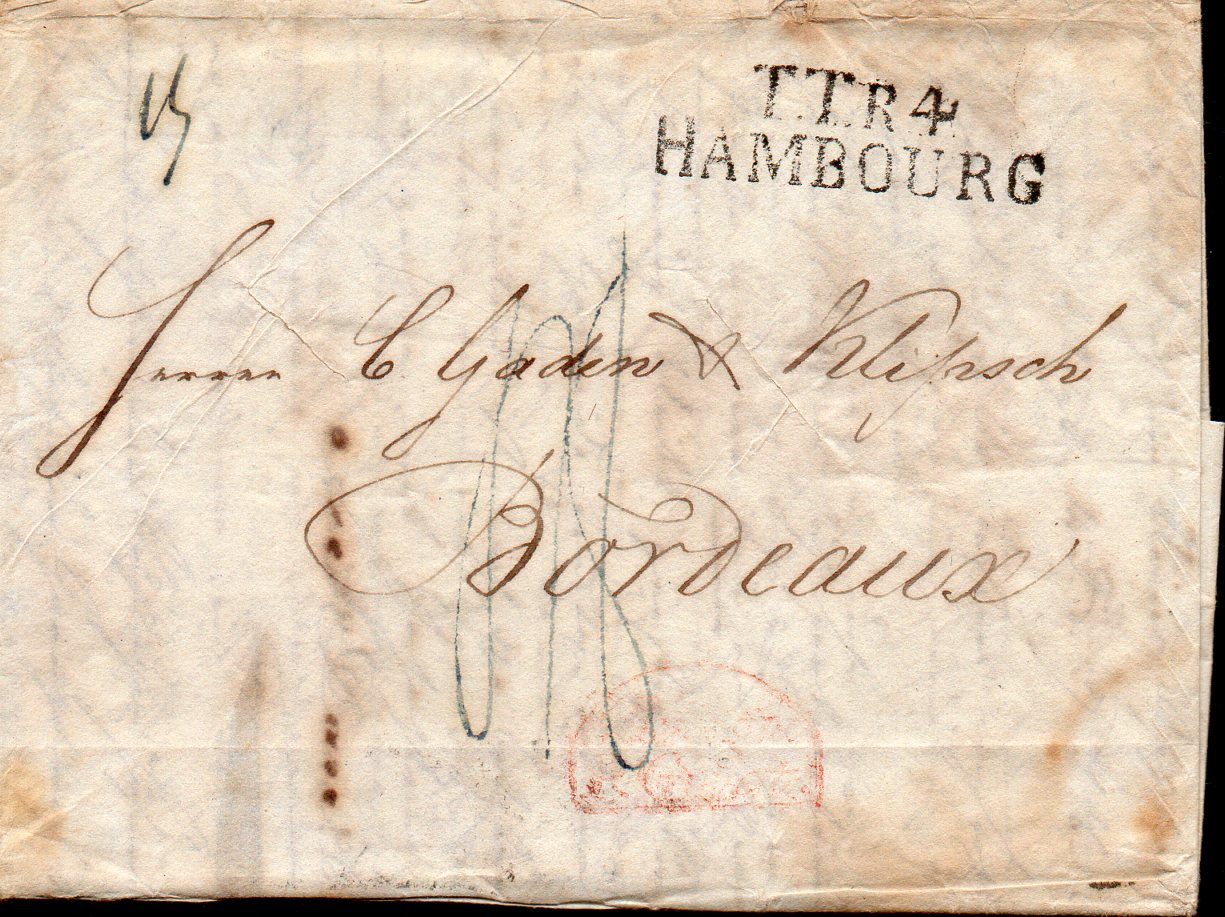 T.T.R.4
HAMBOURG
Herren C. Gaden & Klipsch
Bordeaux